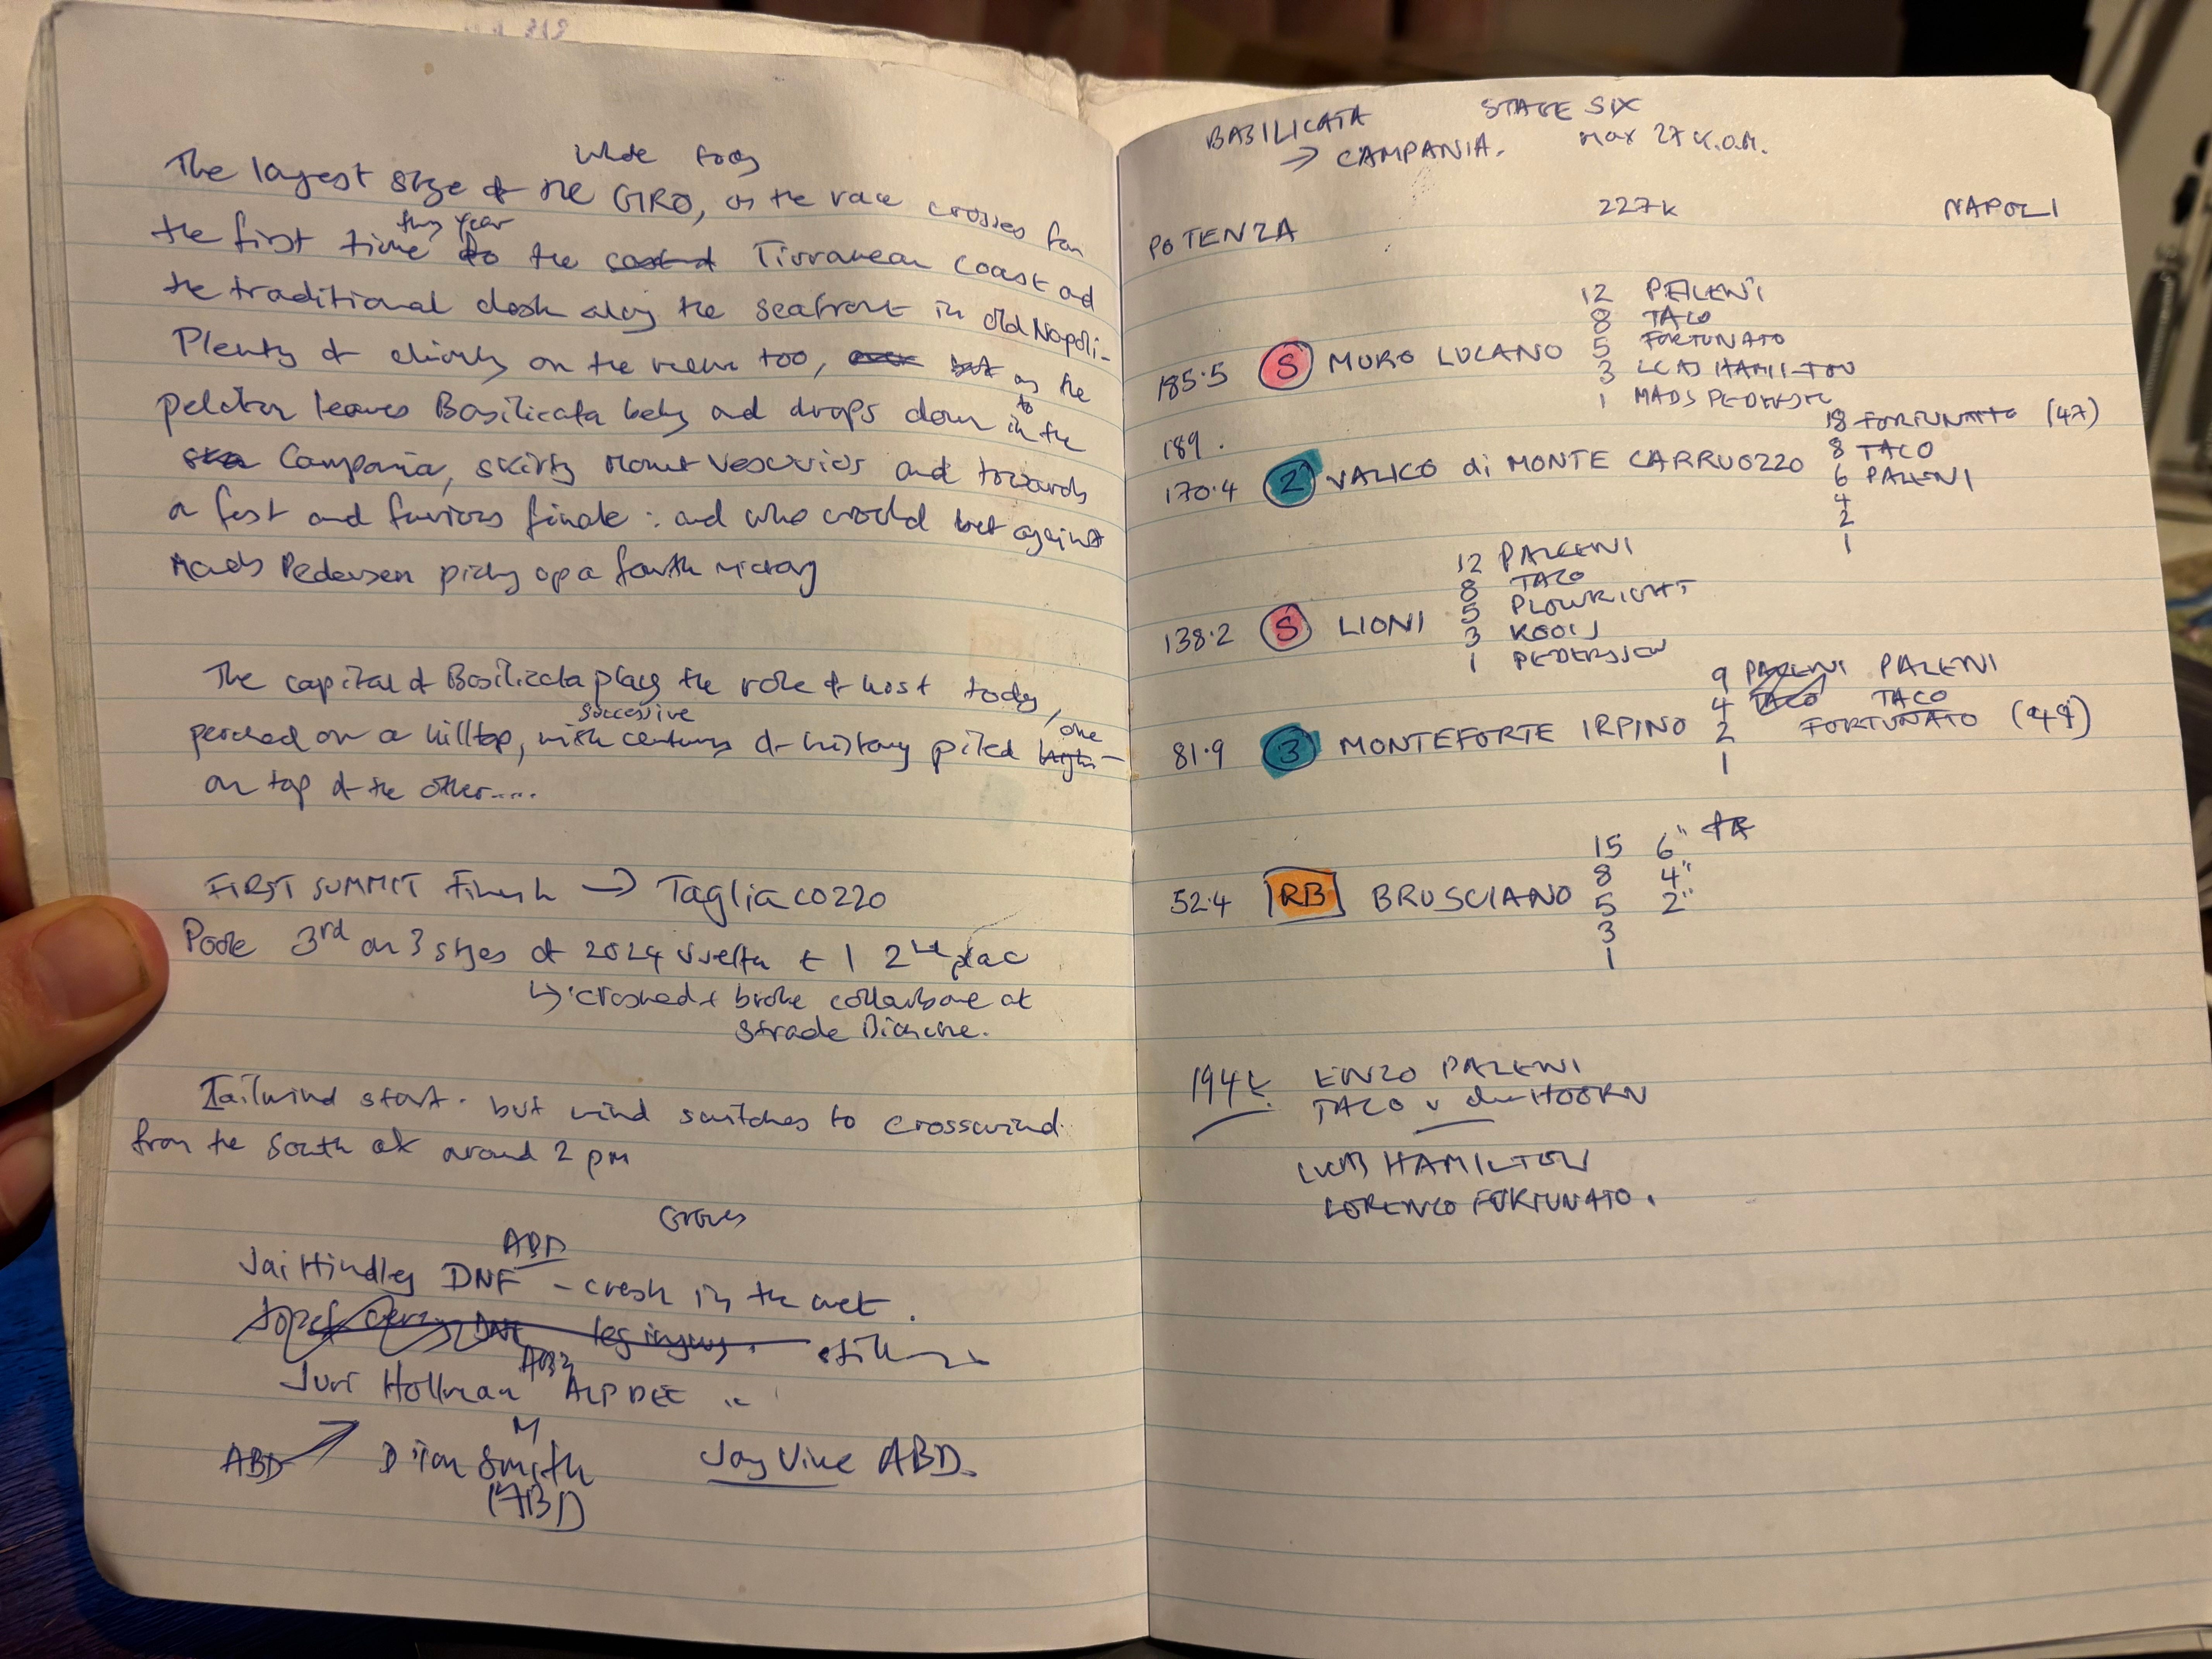 whole today
The longest stage of the GIRO, as the race crosses for
this year
the first time to the coast Tirranean coast and
the traditional dash along the seafront in old Napoli -
Plenty of climbing on the menu too, but as the
peloton leaves Basilicata behind and drops down in to the
Campania, skirts Mount Vesuvius and towards
a fast and furious finale : and who would bet against
Mads Pedersen picking up a fourth victory
The capital of Basilicata plays the role of host today,
successive one
perched on a hilltop, with centuries of history piled high
on top of the other....
FIRST SUMMIT Finish → Tagliacozzo
Poole 3rd on 3 stages of 2024 Vuelta + 1 2nd place
↳ crashed + broke collarbone at
Strade Bianche.
Tailwind start. but wind switches to crosswind.
from the south at around 2 pm
Groves
ABD
Jai Hindley DNF - crash in the wet.
Josef Cerny DNF leg injury. still in
ABD
Juri Hollman ALP DEC "
M
ABD Dion Smith Jay Vine ABD.
(ABD)
BASILICATA STAGE SIX
→ CAMPANIA. Max 27 K.O.M.
POTENZA 227k NAPOLI
12 PALENI
8 TACO
185.5 S MURO LUCANO 5 FORTUNATO
3 LUCAS HAMILTON
1 MADS PEDERSEN
189.
18 FORTUNATO (47)
8 TACO
170.4 2 VALICO di MONTE CARRUOZZO 6 PALENI
4
2
1
12 PALENI
8 TACO
5 PLOWRIGHT
138.2 S LIONI 3 KOOIJ
1 PEDERSSEN
9 PALENI PALENI
4 TACO TACO
81.9 3 MONTEFORTE IRPINO 2 FORTUNATO (49)
1
15 6"
8 4"
52.4 RB BRUSCIANO 5 2"
3
1
194k ENZO PALENI
TACO v der HOORN
LUCAS HAMILTON
LORENZO FORTUNATO.